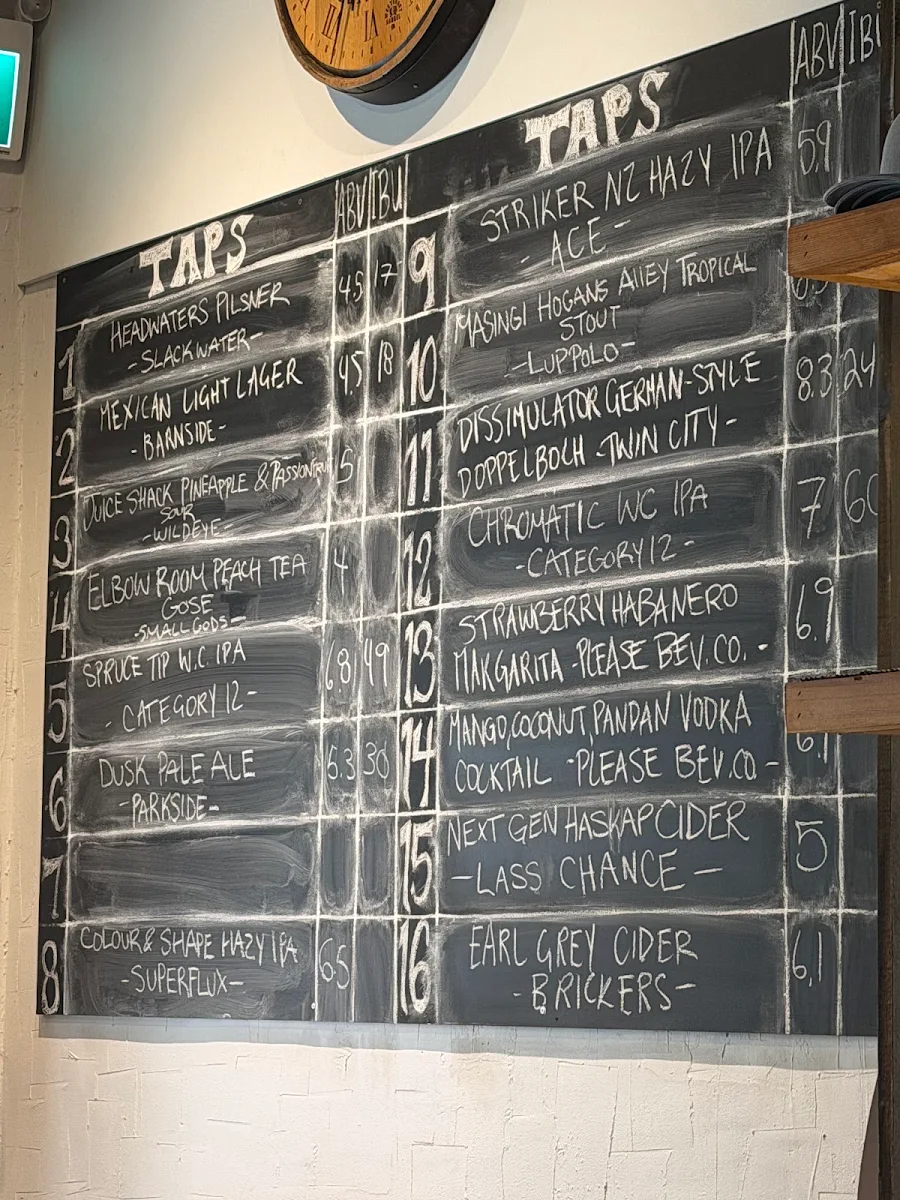 TAPS ABV IBU
1 HEADWATERS PILSNER 4.5 17
-SLACKWATER-
2 MEXICAN LIGHT LAGER 4.5 18
-BARNSIDE-
3 JUICE SHACK PINEAPPLE & PASSIONFRUIT 5
SOUR
-WILDEYE-
4 ELBOW ROOM PEACH TEA 4
GOSE
-SMALL GODS-
5 SPRUCE TIP W.C. IPA 6.8 49
-CATEGORY 12-
6 DUSK PALE ALE 5.3 30
-PARKSIDE-
7
8 COLOUR & SHAPE HAZY IPA 6.5
-SUPERFLUX-
TAPS ABV IBU
9 STRIKER NZ HAZY IPA 5.9
- ACE -
10 MASINGI HOGANS AllEY TROPICAL
STOUT
-LUPPOLO-
11 DISSIMULATOR GERMAN-STYLE 8.3 24
DOPPELBOCH -TWIN CITY-
12 CHROMATIC WC IPA 7 60
-CATEGORY 12-
13 STRAWBERRY HABANERO 6.9
MARGARITA -PLEASE BEV.CO.-
14 MANGO, COCONUT, PANDAN VODKA 6.1
COCKTAIL -PLEASE BEV.CO-
15 NEXT GEN HASKAP CIDER 5
-LASS CHANCE-
16 EARL GREY CIDER 6.1
-BRICKERS-